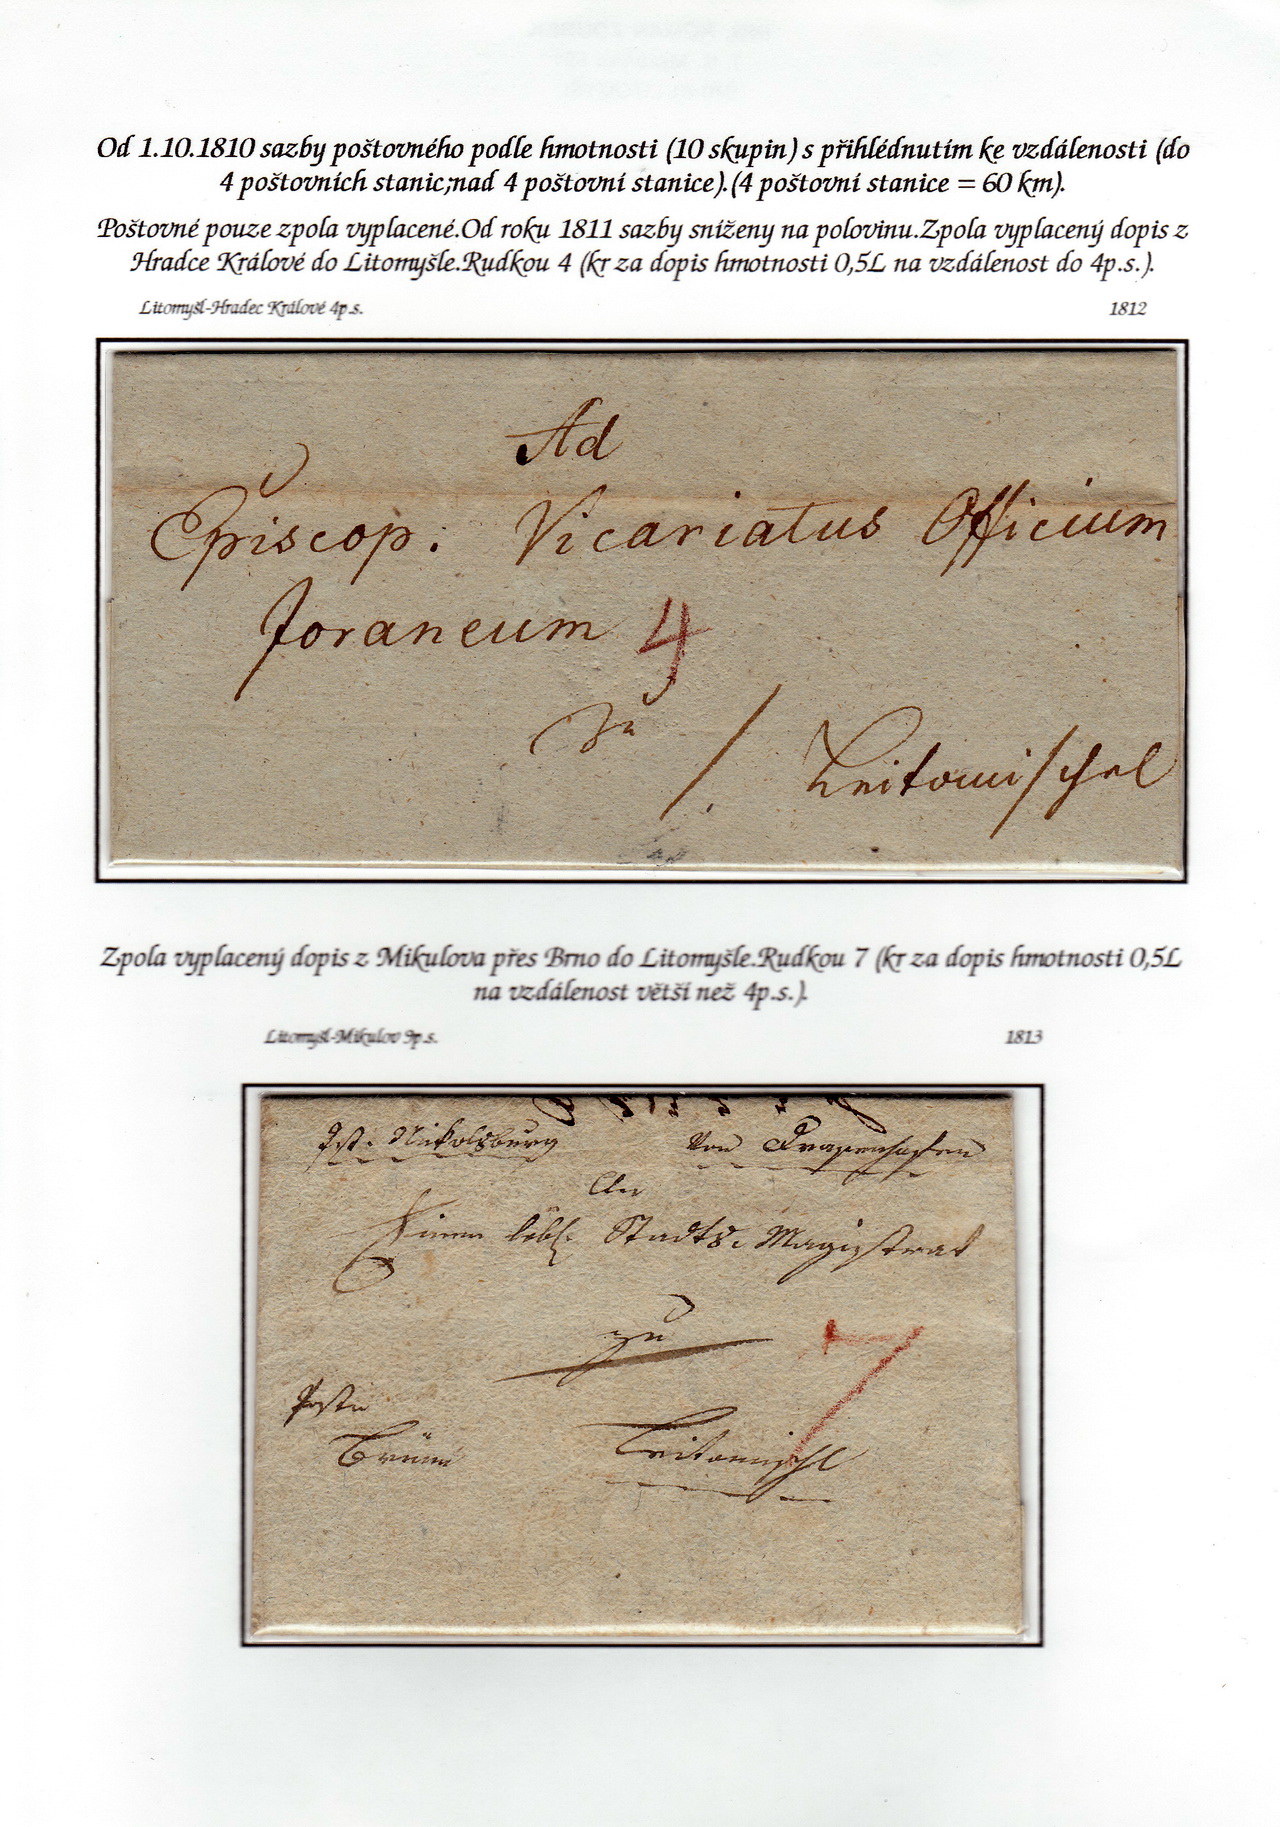 Od 1.10.1810 sazby poštovného podle hmotnosti (10 skupin) s přihlédnutím ke vzdálenosti (do
4 poštovních stanic;nad 4 poštovní stanice).(4 poštovní stanice = 60 km).
Poštovné pouze zpola vyplacené.Od roku 1811 sazby sníženy na polovinu.Zpola vyplacený dopis z
Hradce Králové do Litomyšle.Rudkou 4 (kr za dopis hmotnosti 0,5L na vzdálenost do 4p.s.).
Litomyšl-Hradec Králové 4p.s. 1812
Ad
Episcop: Vicariatus Officium
foraneum 4
zu / Leitomischel
Zpola vyplacený dopis z Mikulova přes Brno do Litomyšle.Rudkou 7 (kr za dopis hmotnosti 0,5L
na vzdálenost větší než 4p.s.).
Litomyšl-Mikulov 9p.s. 1813
Pst. Nikolsburg Von
An
Einen löbl. Stadts. Magistrat
zu
7
Brünn Leitomischl